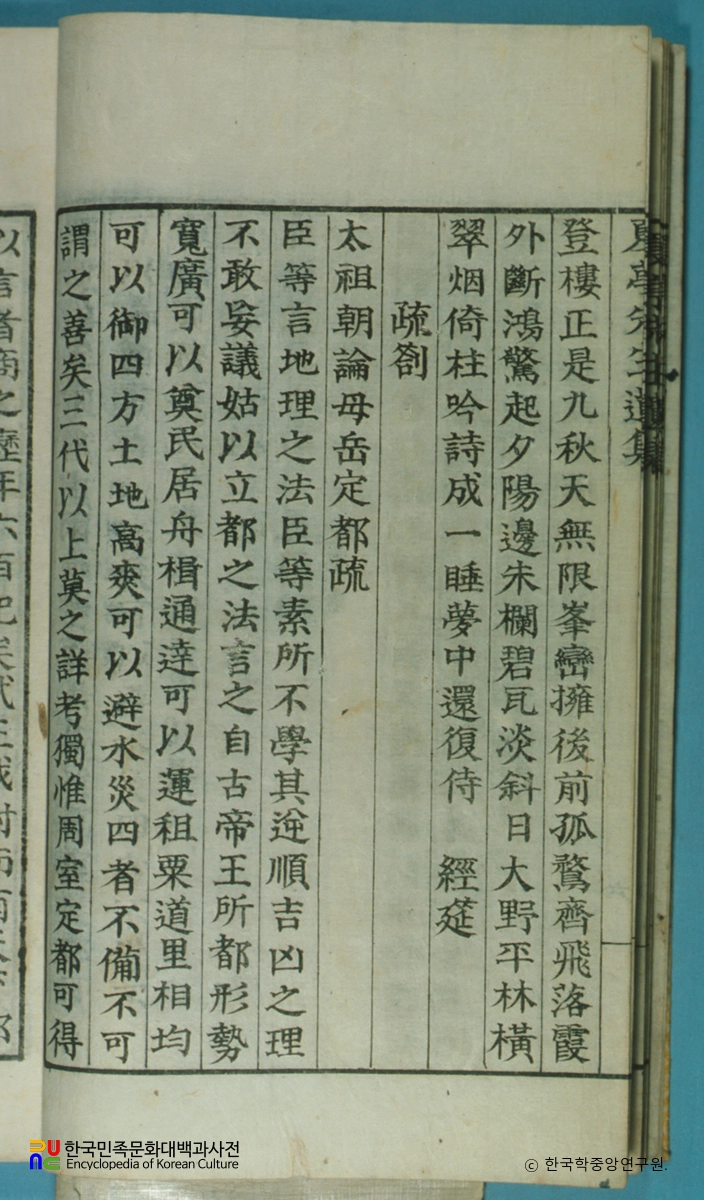 夏亭先生遺集
登樓正是九秋天無限峯巒擁後前孤鶩齊飛落霞
外斷鴻驚起夕陽邊朱欄碧瓦淡斜日大野平林橫
翠烟倚柱吟詩成一睡夢中還復侍 經莚
疏劄
太祖朝論毋岳定都疏
臣等言地理之法臣等素所不學其逆順吉凶之理
不敢妄議姑以立都之法言之自古帝王所都形勢
寬廣可以奠民居舟楫通達可以運租粟道里相均
可以御四方土地高爽可以避水災四者不備不可
謂之善矣三代以上莫之詳考獨惟周室定都可得
以言者商之歷年六百
한국민족문화대백과사전
Encyclopedia of Korean Culture
© 한국학중앙연구원.